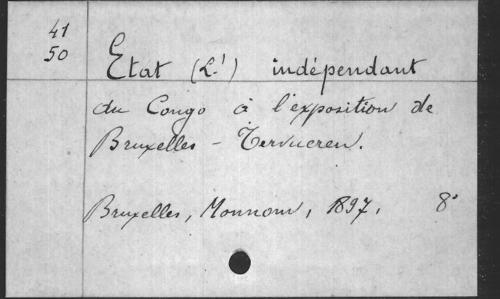 41
50
Etat (L') indépendant
du Congo à l'exposition de
Bruxelles - Tervueren.
Bruxelles, Monnom, 1897, 8°